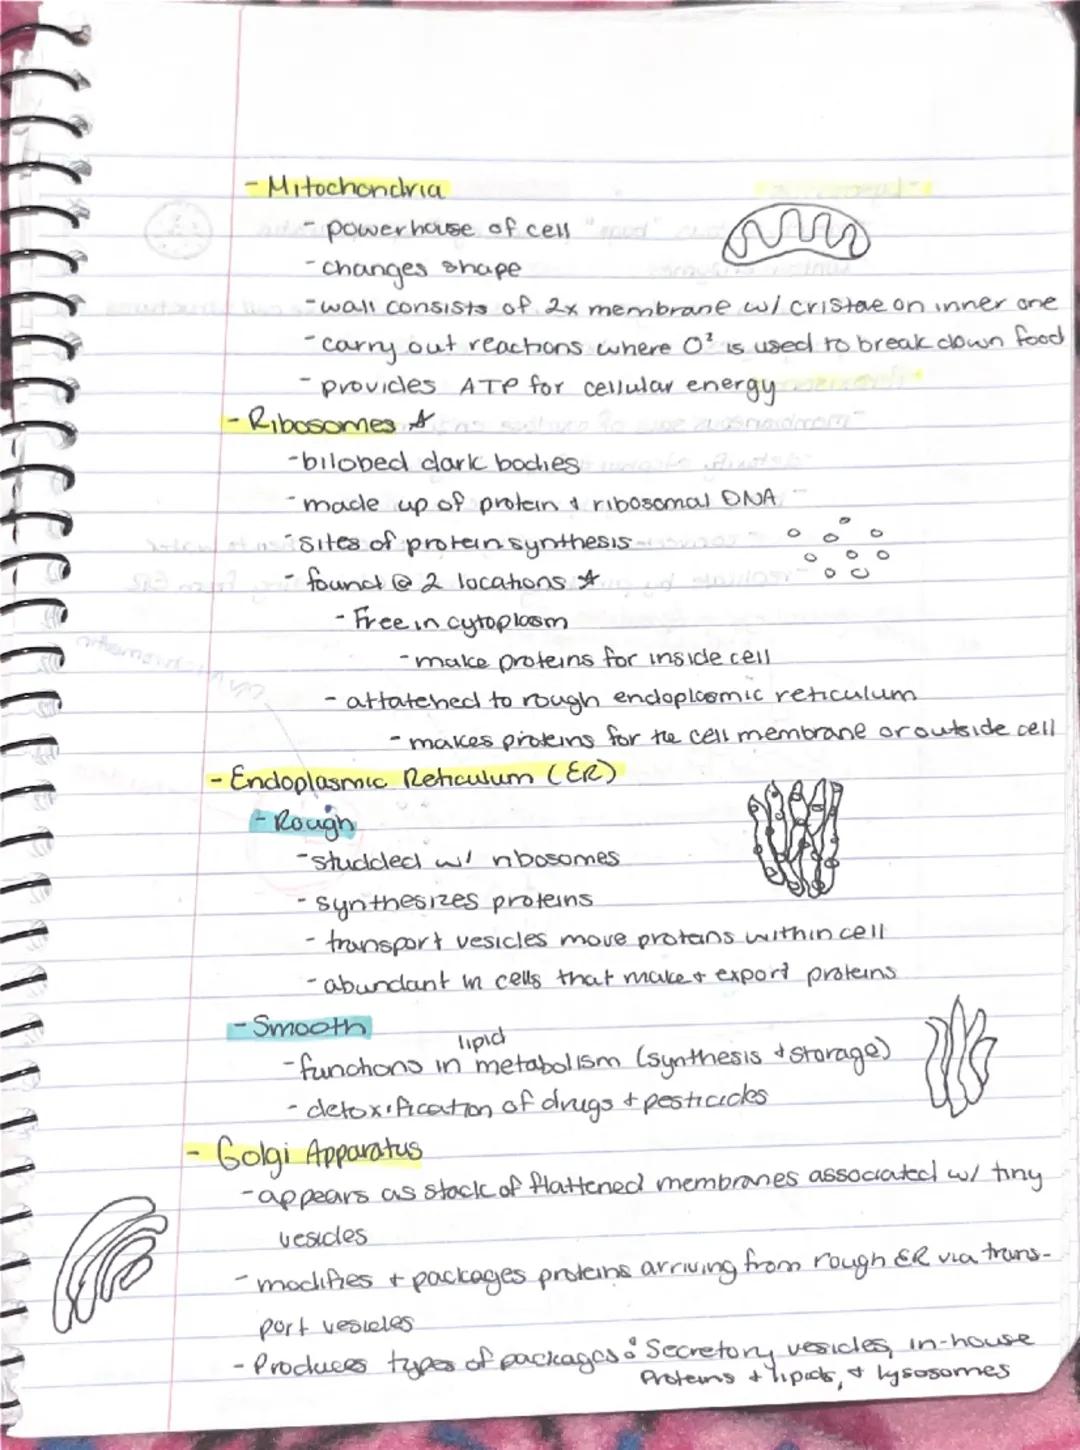 - Mitochondria
- powerhouse of cell
- changes shape
- wall consists of 2x membrane w/ cristae on inner one
- carry out reactions where O² is used to break down food
- provides ATP for cellular energy
- Ribosomes ☆
- bilobed dark bodies
- made up of protein + ribosomal DNA
- sites of protein synthesis
- found @ 2 locations ☆
- Free in cytoplasm
- make proteins for inside cell
- attatched to rough endoplasmic reticulum
- makes proteins for the cell membrane or outside cell
- Endoplasmic Reticulum (ER)
- Rough
- studded w/ ribosomes
- synthesizes proteins
- transport vesicles move proteins within cell
- abundant in cells that make + export proteins
- Smooth
lipid
- functions in metabolism (synthesis + storage)
- detoxification of drugs + pesticides
- Golgi Apparatus
- appears as stack of flattened membranes associated w/ tiny
vesicles
- modifies + packages proteins arriving from rough ER via trans-
port vesicles
- Produces types of packages: Secretory vesicles, in-house
Proteins + lipids, + lysosomes